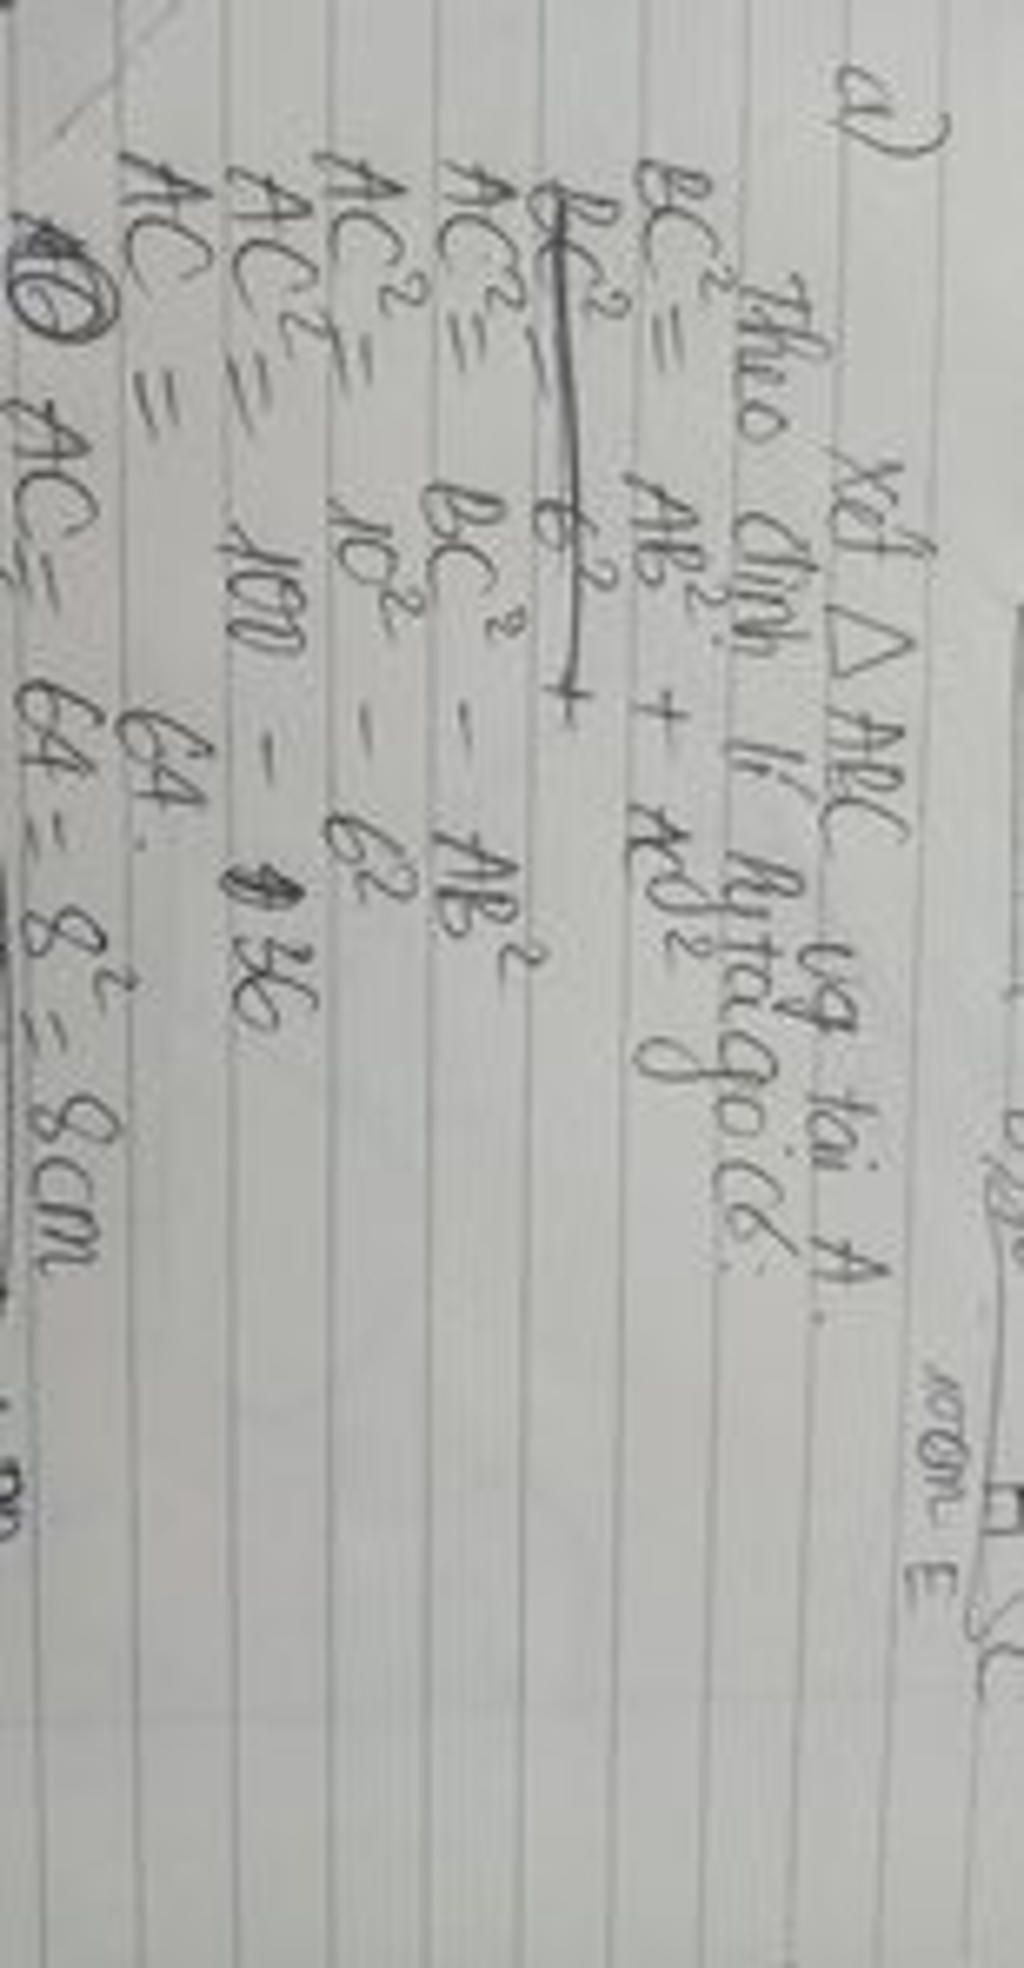 10cm E C
a) Xét △ ABC vg tại A.
Theo định lí Pytago có:
BC² = AB² + AC²
BC² = 6² +
AC² = BC² - AB²
AC² = 10² - 6²
AC² = 100 - 36
AC = 64.
AC = 64 = 8² = 8cm